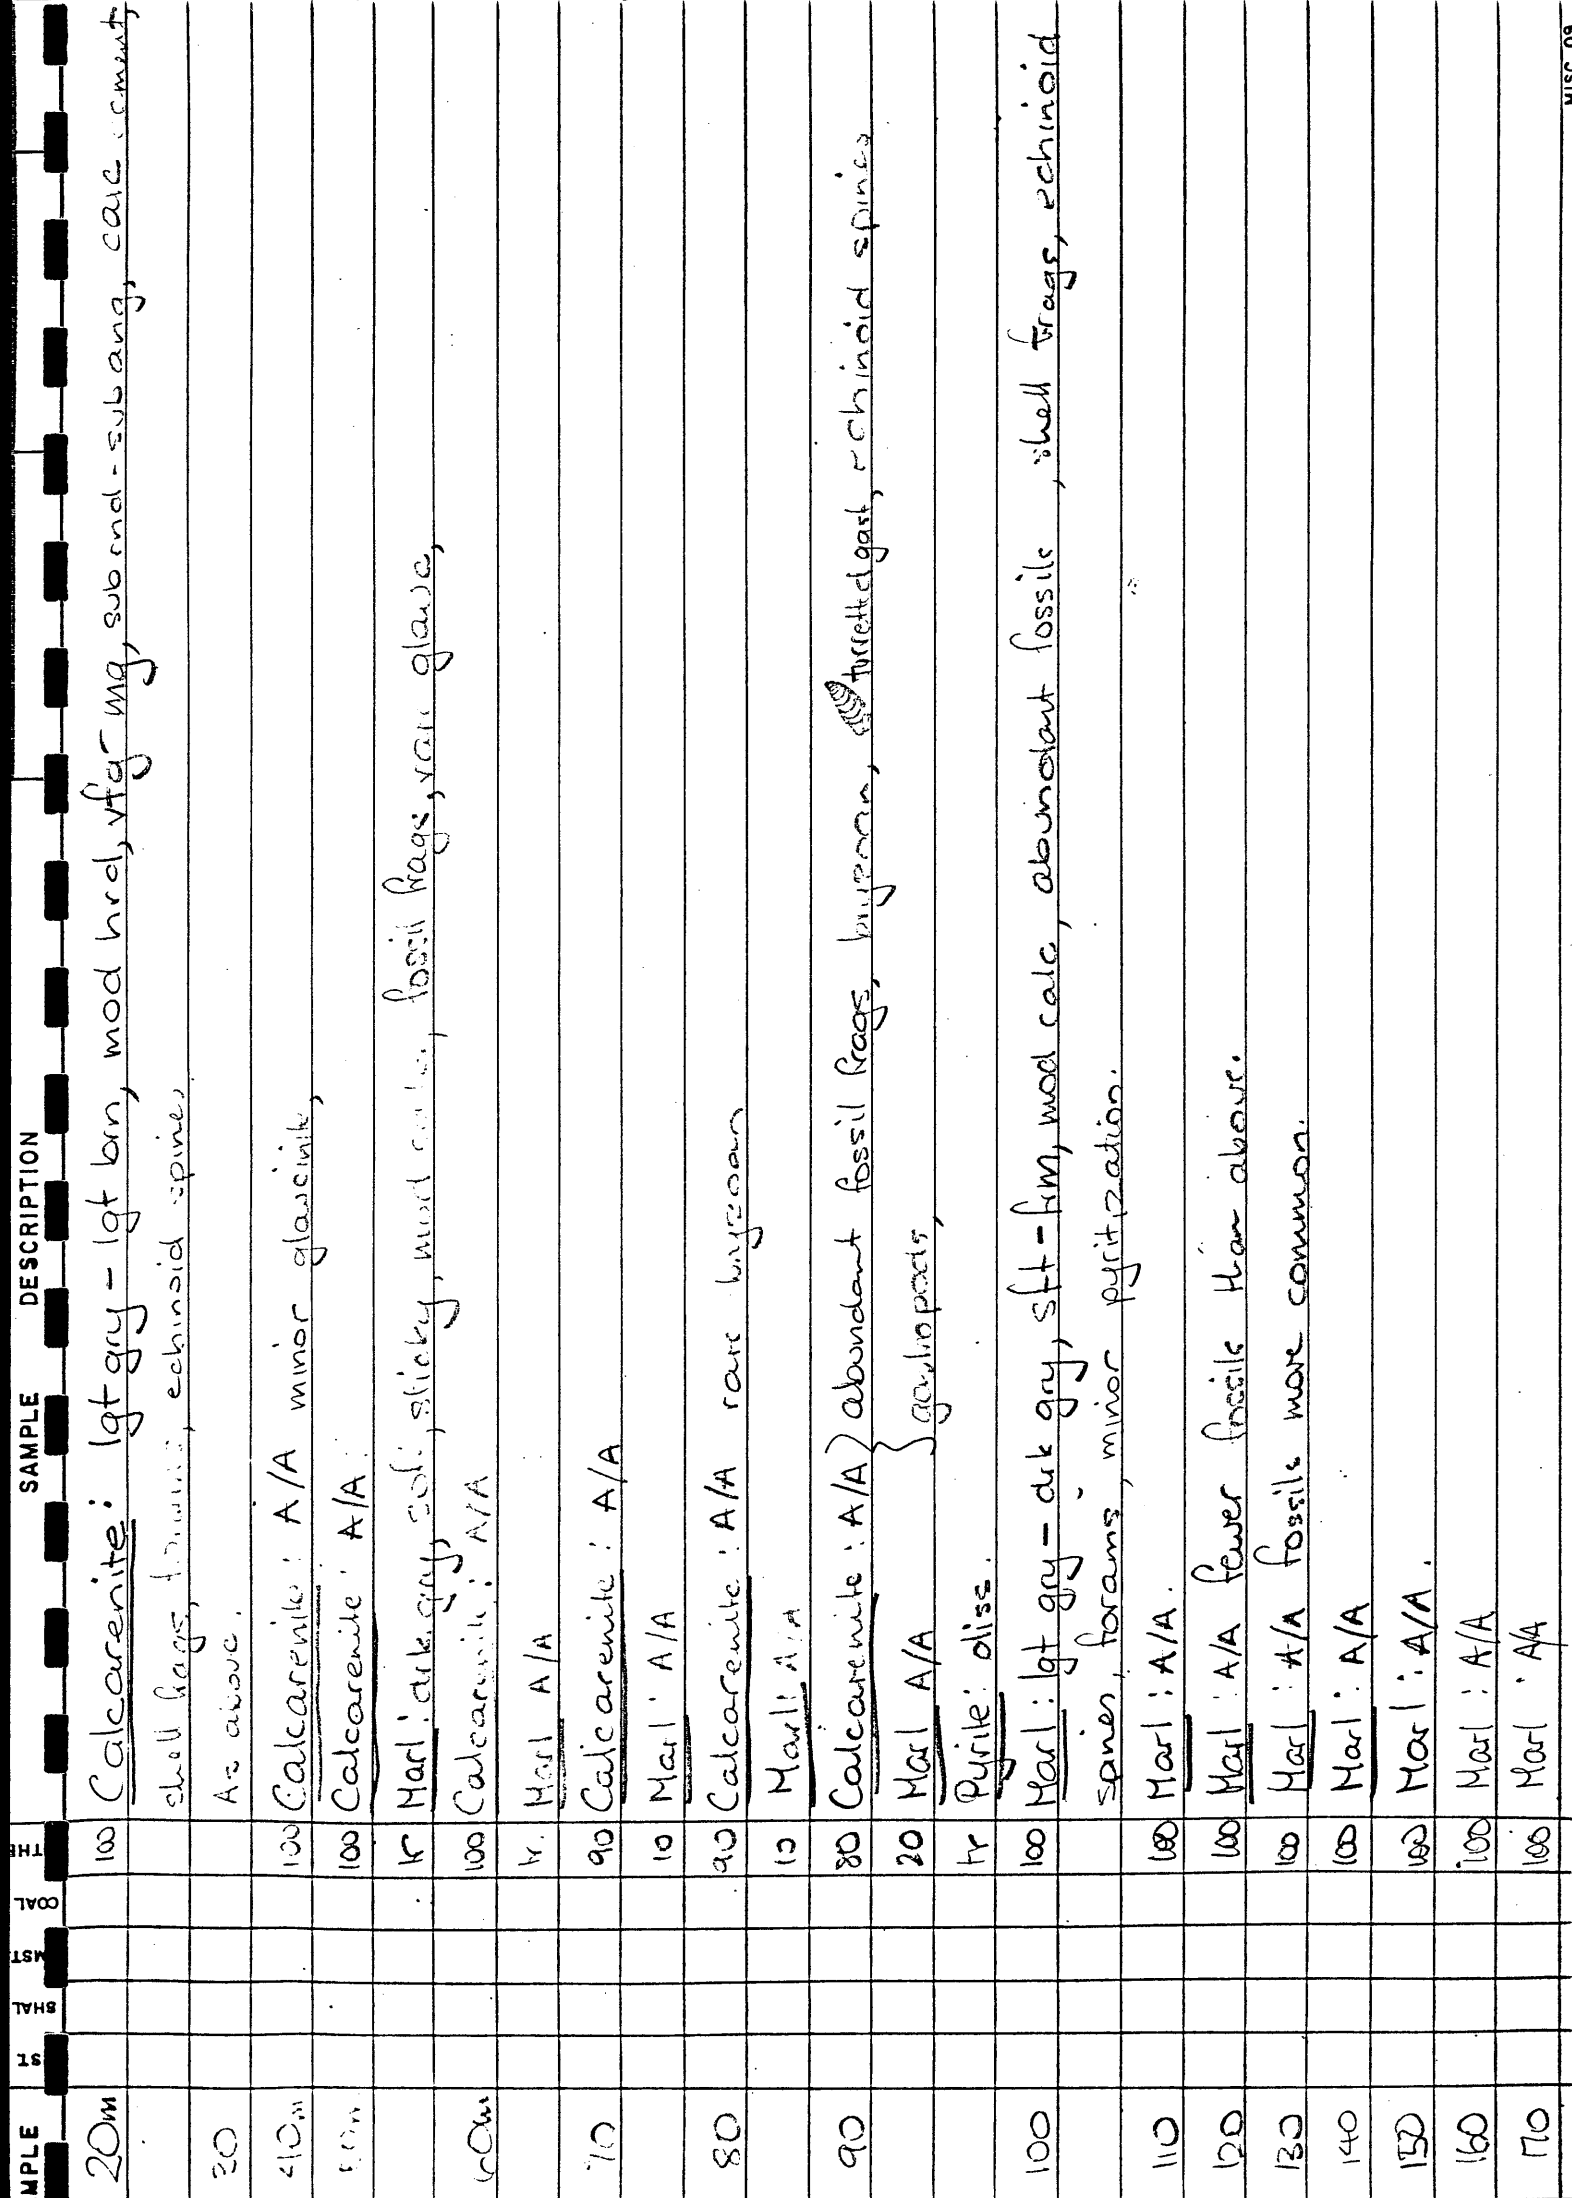 MPLE ST SHAL MST COAL THE SAMPLE DESCRIPTION
20m 100 Calcarenite: lgt gry - lgt brn, mod hrd, vfg - mg, subrnd - subang, calc cement,
shell frags, forams, echinoid spine,
30 As above.
40m 100 Calcarenite: A/A minor glaucinite,
50m 100 Calcarenite: A/A.
tr Marl: dark gray, soft, sticky, mod calc, fossil frags, rare glauc,
60m 100 Calcarenite: A/A
tr. Marl A/A
70 90 Calcarenite: A/A
10 Marl: A/A
80 90 Calcarenite: A/A rare bryzoan
10 Marl: A/A
90 80 Calcarenite: A/A } abundant fossil frags, bryzoan, turretted gast, echinoid spines
20 Marl A/A } gastropods,
tr Pyrite: diss.
100 100 Marl: lgt gry - drk gry, sft - firm, mod calc, abundant fossils, shell frags, echinoid
spines, forams, minor pyritization.
110 100 Marl: A/A.
120 100 Marl: A/A fewer fossils than above.
130 100 Marl: A/A fossils more common.
140 100 Marl: A/A
150 100 Marl: A/A.
160 100 Marl: A/A
170 100 Marl: A/A
MISC 09